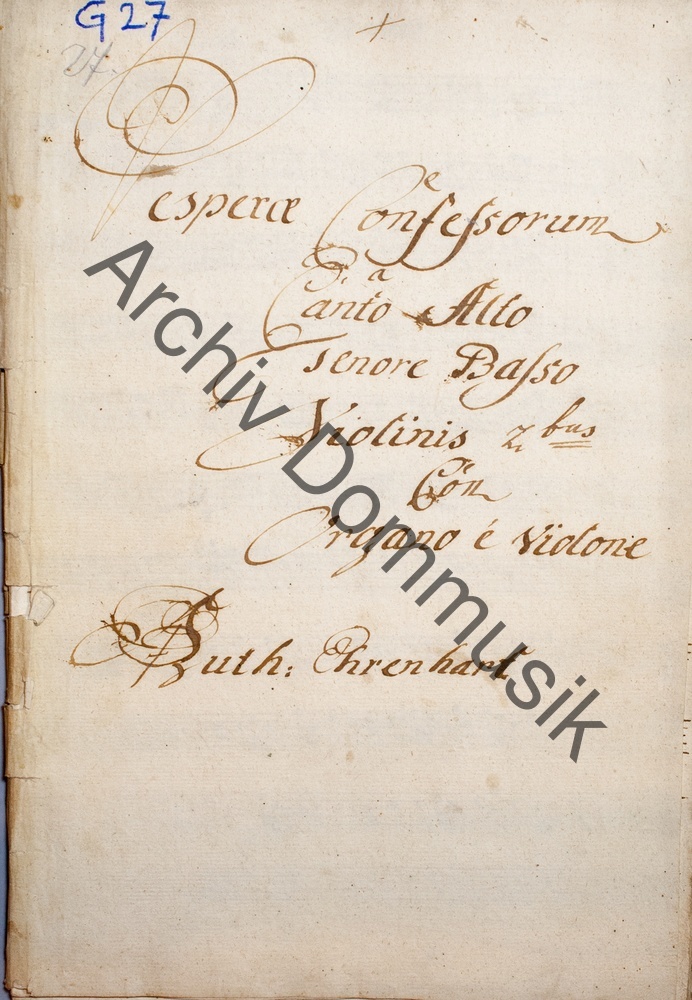 G 27
27.
Vesperæ Confessorum
à
Canto Alto
Tenore Basso
Violinis 2 bus
Con
Organo è Violone
Auth: Ehrenhart
Archiv Dommusik